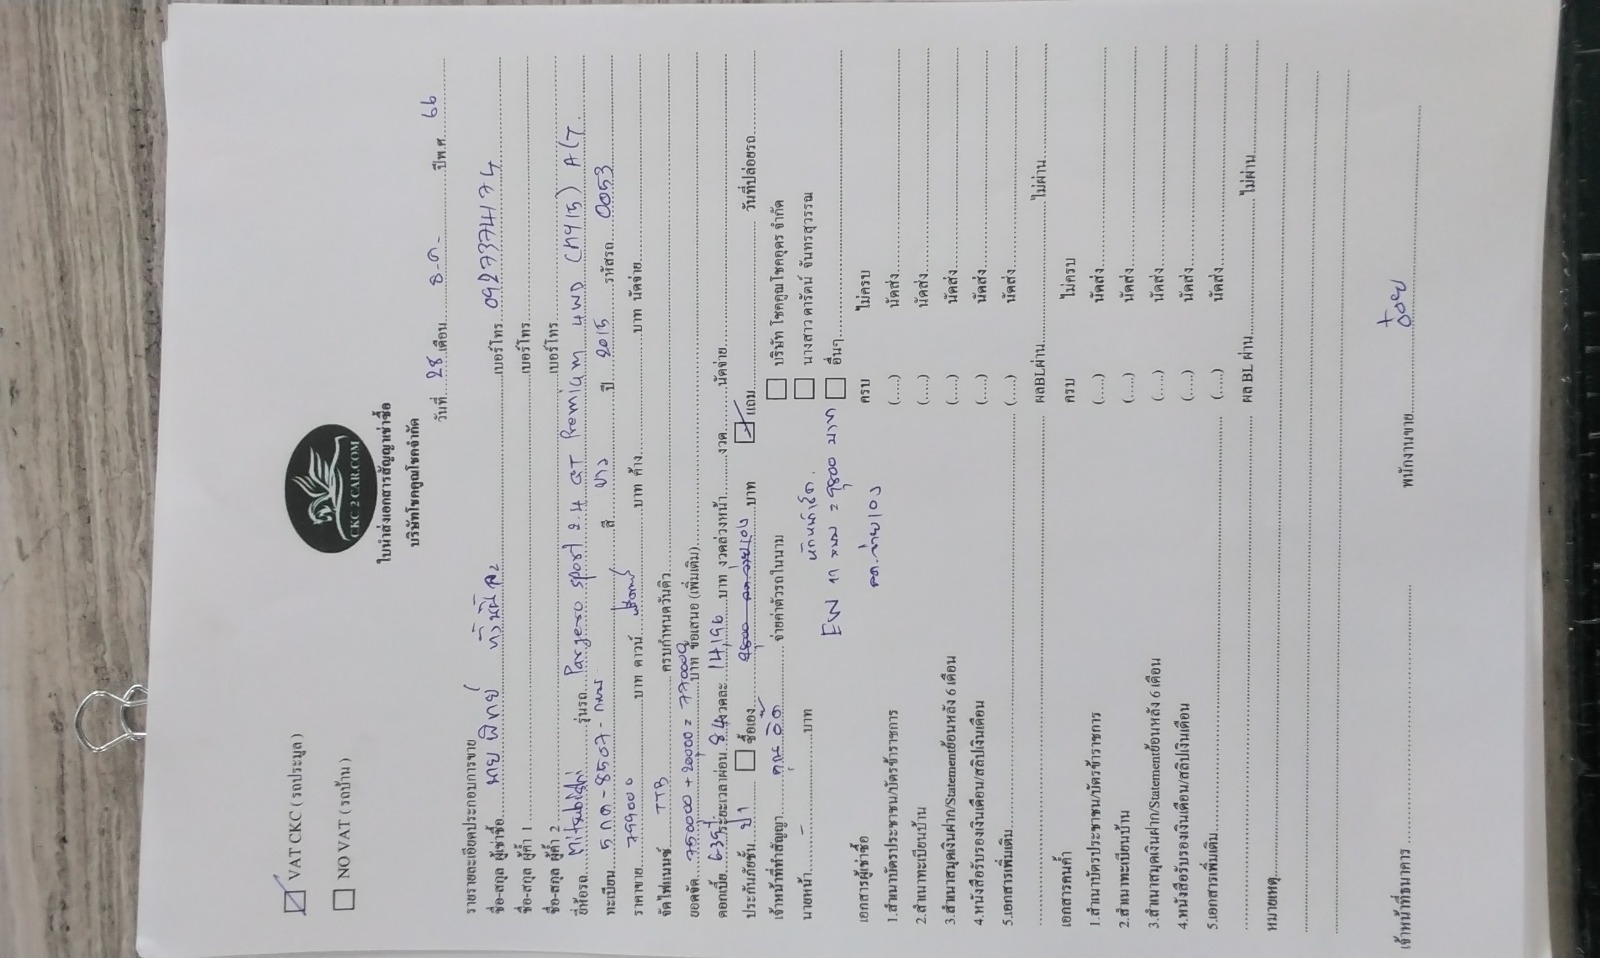 VAT CKC ( รถประมูล )
NO VAT ( รถบ้าน )
CKC 2 CAR.COM
ใบนำส่งเอกสารสัญญาเช่าซื้อ
บริษัทโชคคูณโชคจำกัด
วันที่ 28 เดือน ธ.ค. ปีพ.ศ. 66
รายรายละเอียดประกอบการขาย
ชื่อ-สกุล ผู้เช่าซื้อ นาย พิทย์ เบอร์โทร 0927374174
ชื่อ-สกุล ผู้ค้ำ 1 เบอร์โทร
ชื่อ-สกุล ผู้ค้ำ 2 เบอร์โทร
ยี่ห้อรถ Mitsubishi รุ่นรถ Parjero sport 2.4 GT Premium 4WD (MY15) A/T
ทะเบียน 5กด-8507-กทม สี ขาว ปี 2015 รหัสรถ 0053
ราคาขาย 799000 บาท ดาวน์ บาท ค้าง บาท นัดจ่าย
จัดไฟแนนซ์ TTB ครบกำหนดวันคิว
ยอดจัด 750000 + 20,000 = 770000 บาท ข้อเสนอ (เพิ่มเติม)
ดอกเบี้ย ระยะเวลาผ่อน 84 งวดละ 14,196 บาท งวดล่วงหน้า งวด นัดจ่าย
ประกันภัยชั้น ป1 ซื้อเอง บาท แถม วันที่ปล่อยรถ
เจ้าหน้าที่ทำสัญญา จ่ายค่าตัวรถในนาม บริษัท โชคคูณโชคอุดร จำกัด
นายหน้า - บาท นางสาว ดารัตน์ จันทรสุวรรณ
อื่นๆ
EW = 9800 บาท
เอกสารผู้เช่าซื้อ ครบ ไม่ครบ
1.สำเนาบัตรประชาชน/บัตรข้าราชการ (....) นัดส่ง
2.สำเนาทะเบียนบ้าน (....) นัดส่ง
3.สำเนาสมุดเงินฝาก/Statementย้อนหลัง 6 เดือน (....) นัดส่ง
4.หนังสือรับรองเงินเดือน/สลิปเงินเดือน (....) นัดส่ง
5.เอกสารเพิ่มเติม (....) นัดส่ง
ผลBLผ่าน ไม่ผ่าน
เอกสารคนค้ำ ครบ ไม่ครบ
1.สำเนาบัตรประชาชน/บัตรข้าราชการ (....) นัดส่ง
2.สำเนาทะเบียนบ้าน (....) นัดส่ง
3.สำเนาสมุดเงินฝาก/Statementย้อนหลัง 6 เดือน (....) นัดส่ง
4.หนังสือรับรองเงินเดือน/สลิปเงินเดือน (....) นัดส่ง
5.เอกสารเพิ่มเติม (....) นัดส่ง
ผล BL ผ่าน ไม่ผ่าน
หมายเหตุ
เจ้าหน้าที่ธนาคาร พนักงานขาย